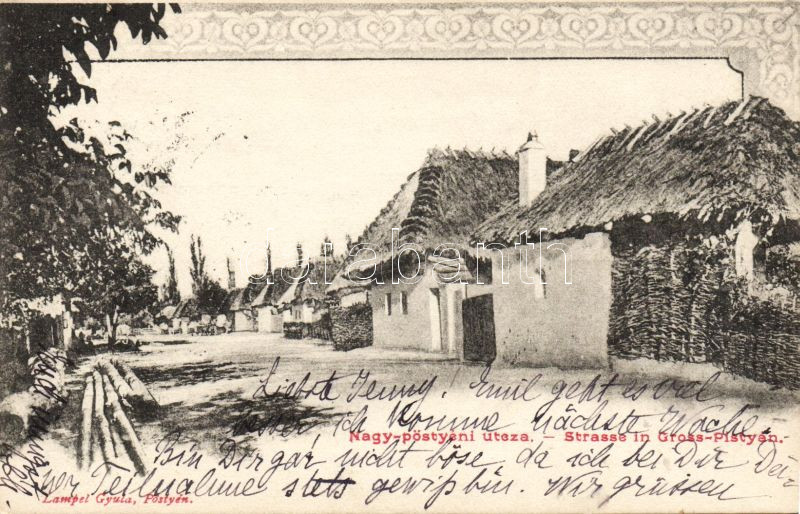 Liebste Jenny! Emil geht es viel
besser ich komme nächste Woche.
Nagy-pöstyéni utcza. — Strasse in Gross-Pistyán.
Bin Dir gar nicht böse da ich bei Dir Dei
ner Teilnahme stets gewiß bin. Wir grüssen
Lampel Gyula, Pöstyén.
darabanth